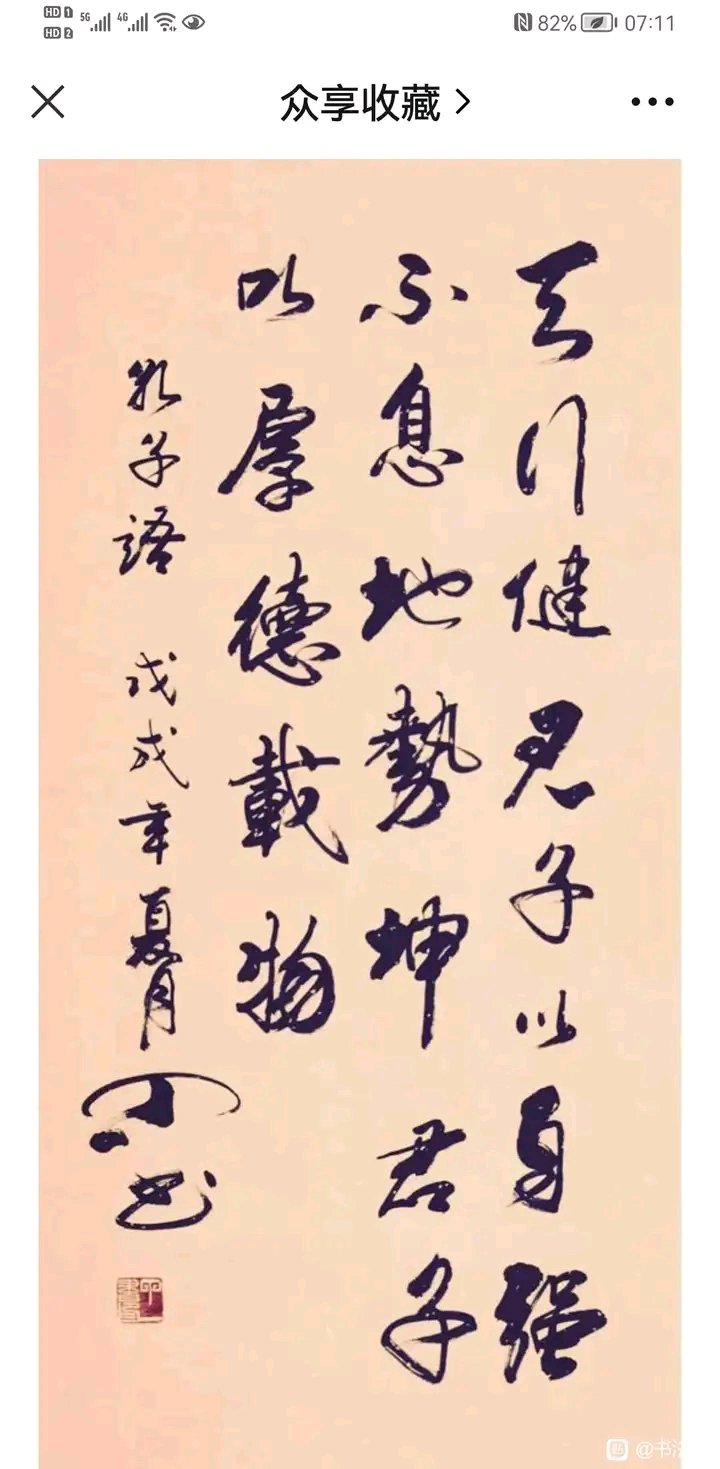 HD 1 5G 4G
HD 2
82% 07:11
众享收藏
天行健君子以自强
不息地勢坤君子
以厚德載物
孔子語 戊戌年夏月
书
@书